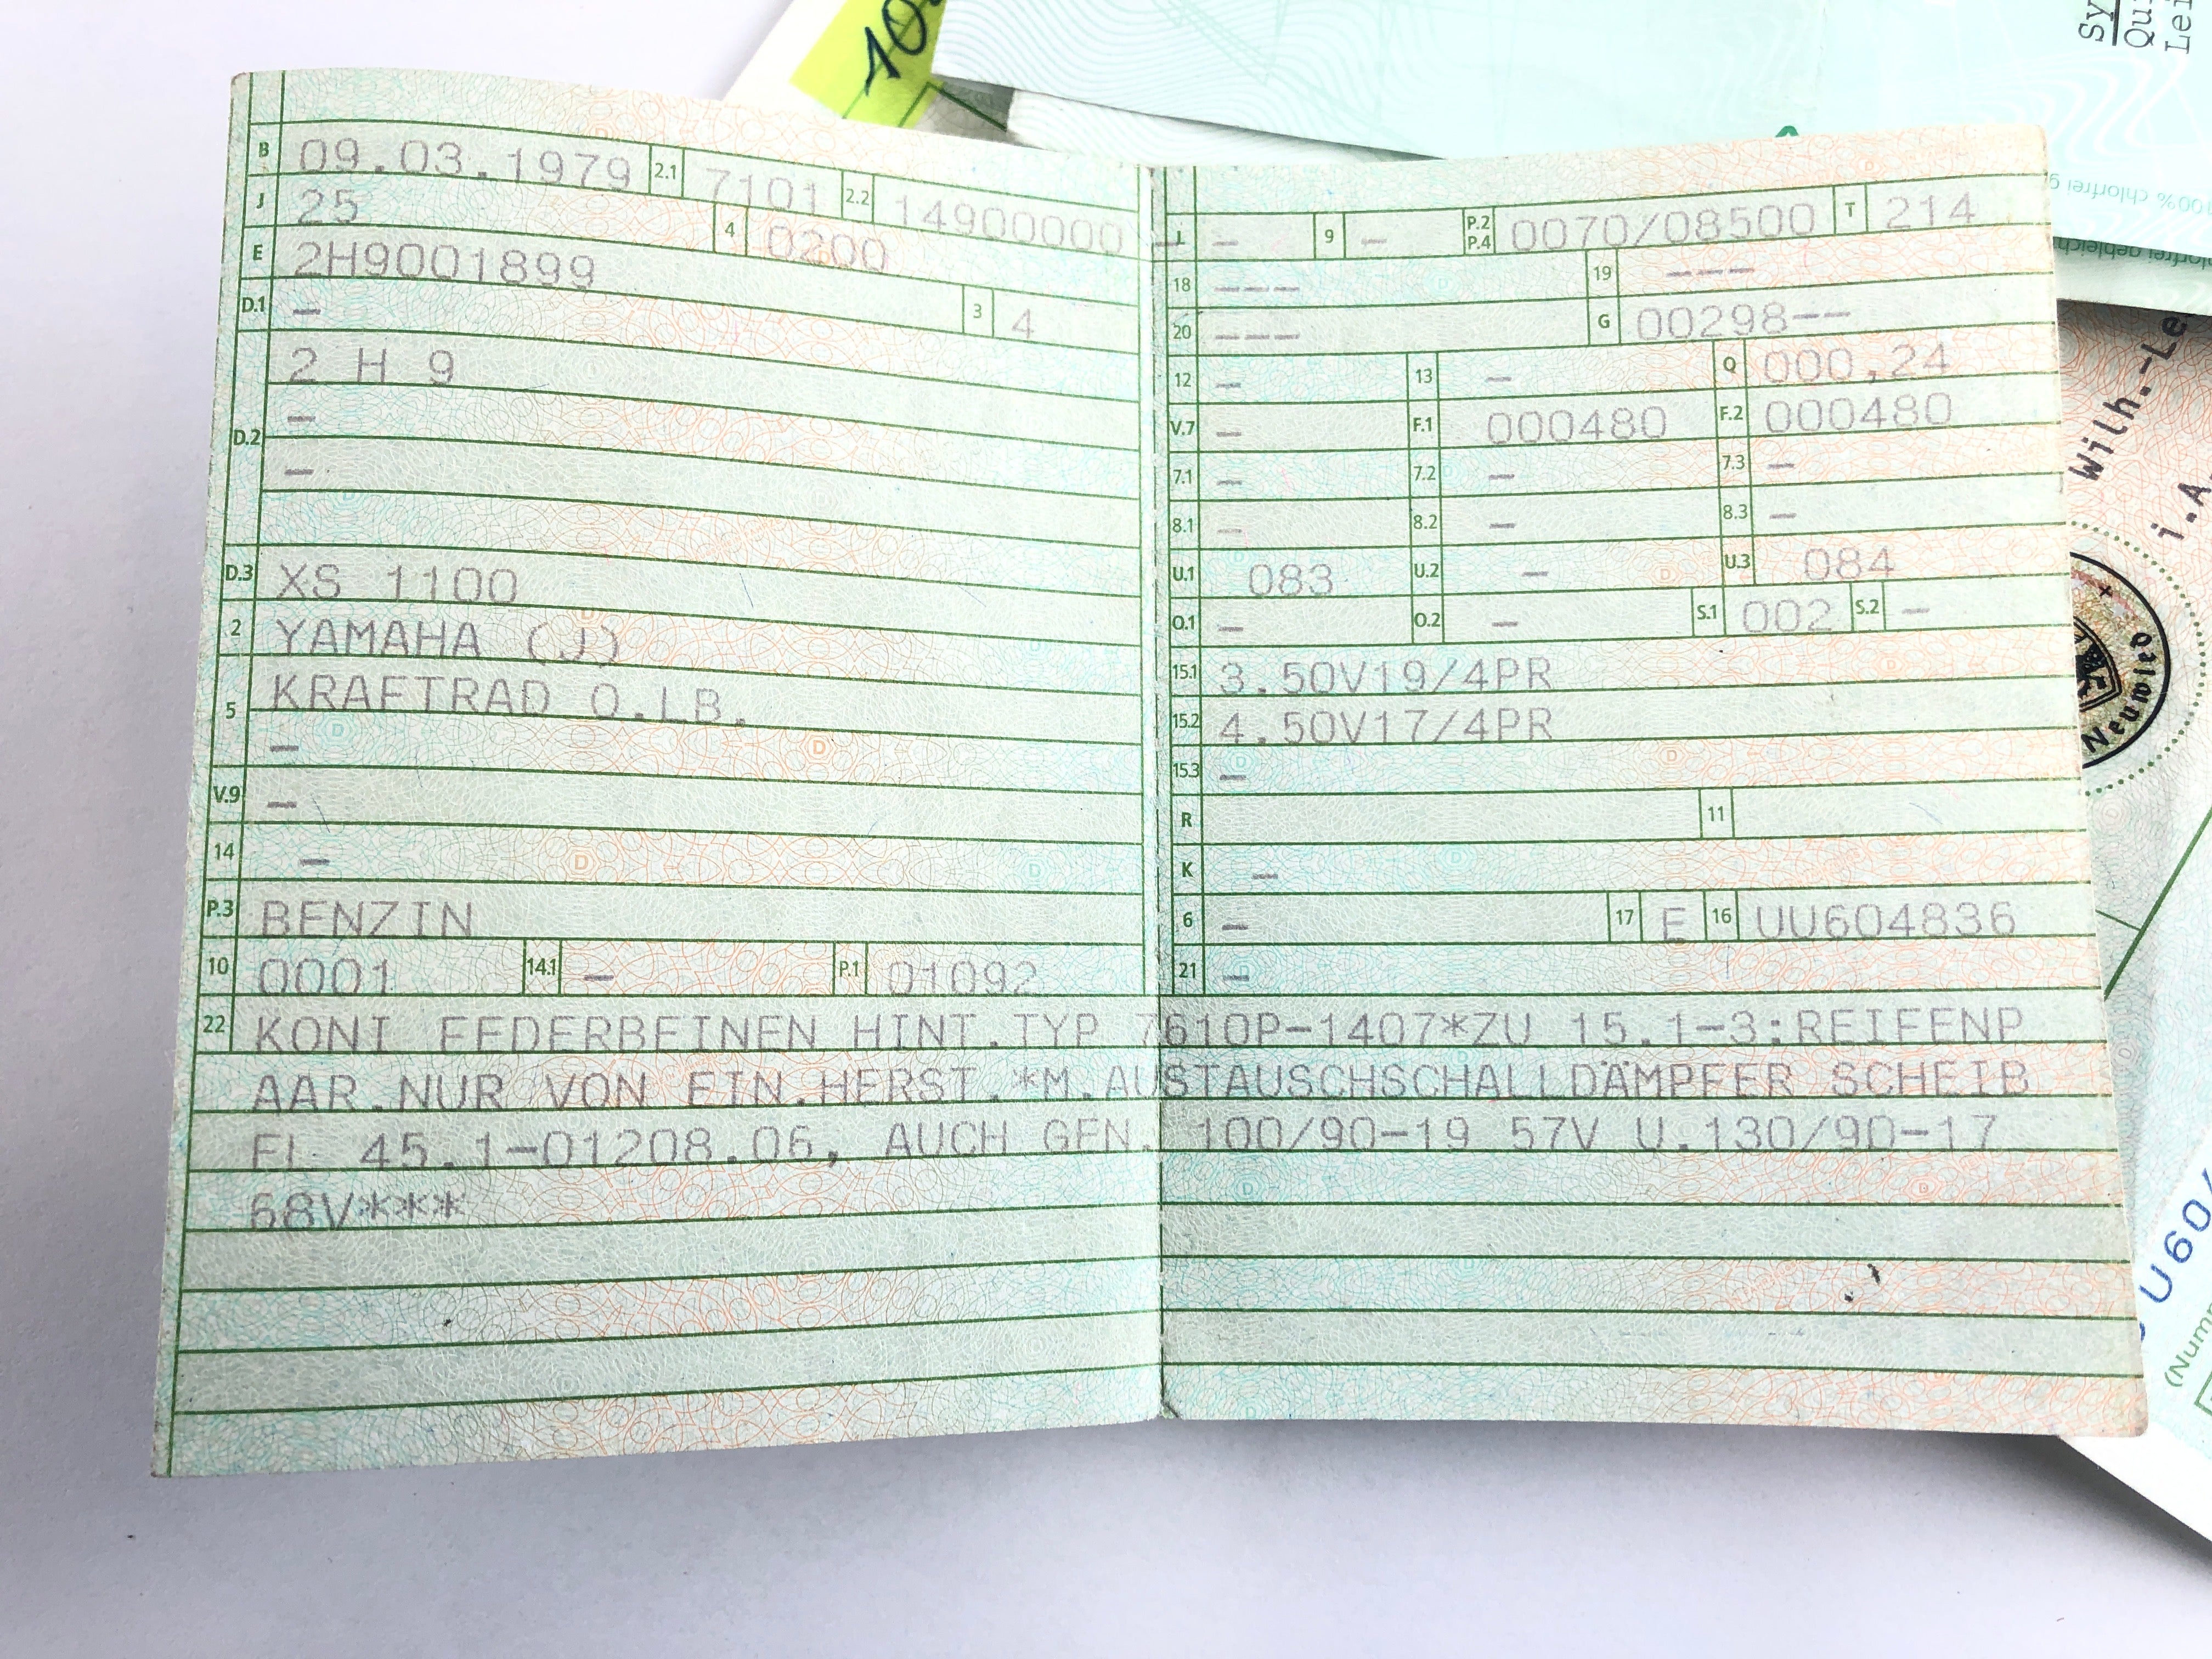 10
Sy
Qu
Lei
100% chlorfrei g
B 09.03.1979 2.1 7101 2.2 14900000
J 25 4 0200
E 2H9001899
D.1 – 3 4
2 H 9
–
D.2
–
D.3 XS 1100
2 YAMAHA (J)
5 KRAFTRAD O.LB.
–
V.9 –
14 –
P.3 BENZIN
10 0001 14.1 – P.1 01092
L – 9 – P.2 P.4 0070/08500 T 214
18 --- 19 ---
20 --- G 00298--
12 – 13 – Q 000,24
V.7 – F.1 000480 F.2 000480
7.1 – 7.2 – 7.3 –
8.1 – 8.2 – 8.3 –
U.1 083 U.2 – U.3 084
O.1 – O.2 – S.1 002 S.2 –
15.1 3.50V19/4PR
15.2 4.50V17/4PR
15.3 –
R 11
K –
6 – 17 E 16 UU604836
21 –
22 KONI FEDERBEINEN HINT.TYP 7610P-1407*ZU 15.1-3:REIFENP
AAR NUR VON EIN.HERST.*M.AUSTAUSCHSCHALLDÄMPFER SCHEIB
EL 45.1-01208.06, AUCH GEN. 100/90-19 57V U.130/90-17
68V***
Wilh.-Le
i.A.
Neuwied
U60
(Num